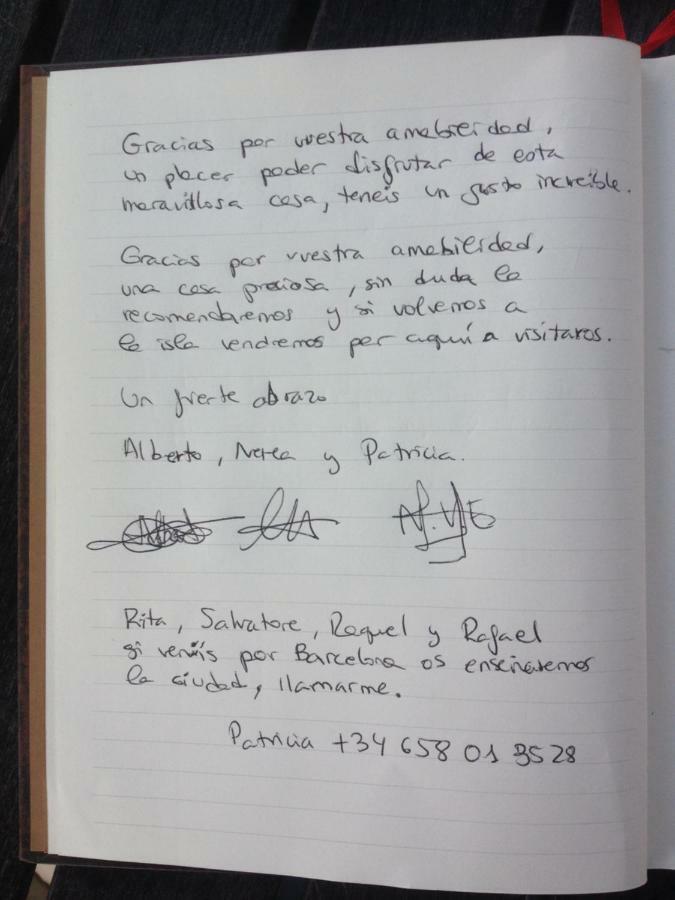 Gracias por vuestra amabilidad,
un placer poder disfrutar de esta
maravillosa casa, teneis un gusto increible.
Gracias por vuestra amabilidad,
una casa preciosa, sin duda la
recomendaremos y si volvemos a
la isla vendremos por aquí a visitaros.
Un fuerte abrazo
Alberto, Nerea y Patricia.
Rita, Salvatore, Raquel y Rafael
si venís por Barcelona os enseñaremos
la ciudad, llamarme.
Patricia +34 658 01 3528